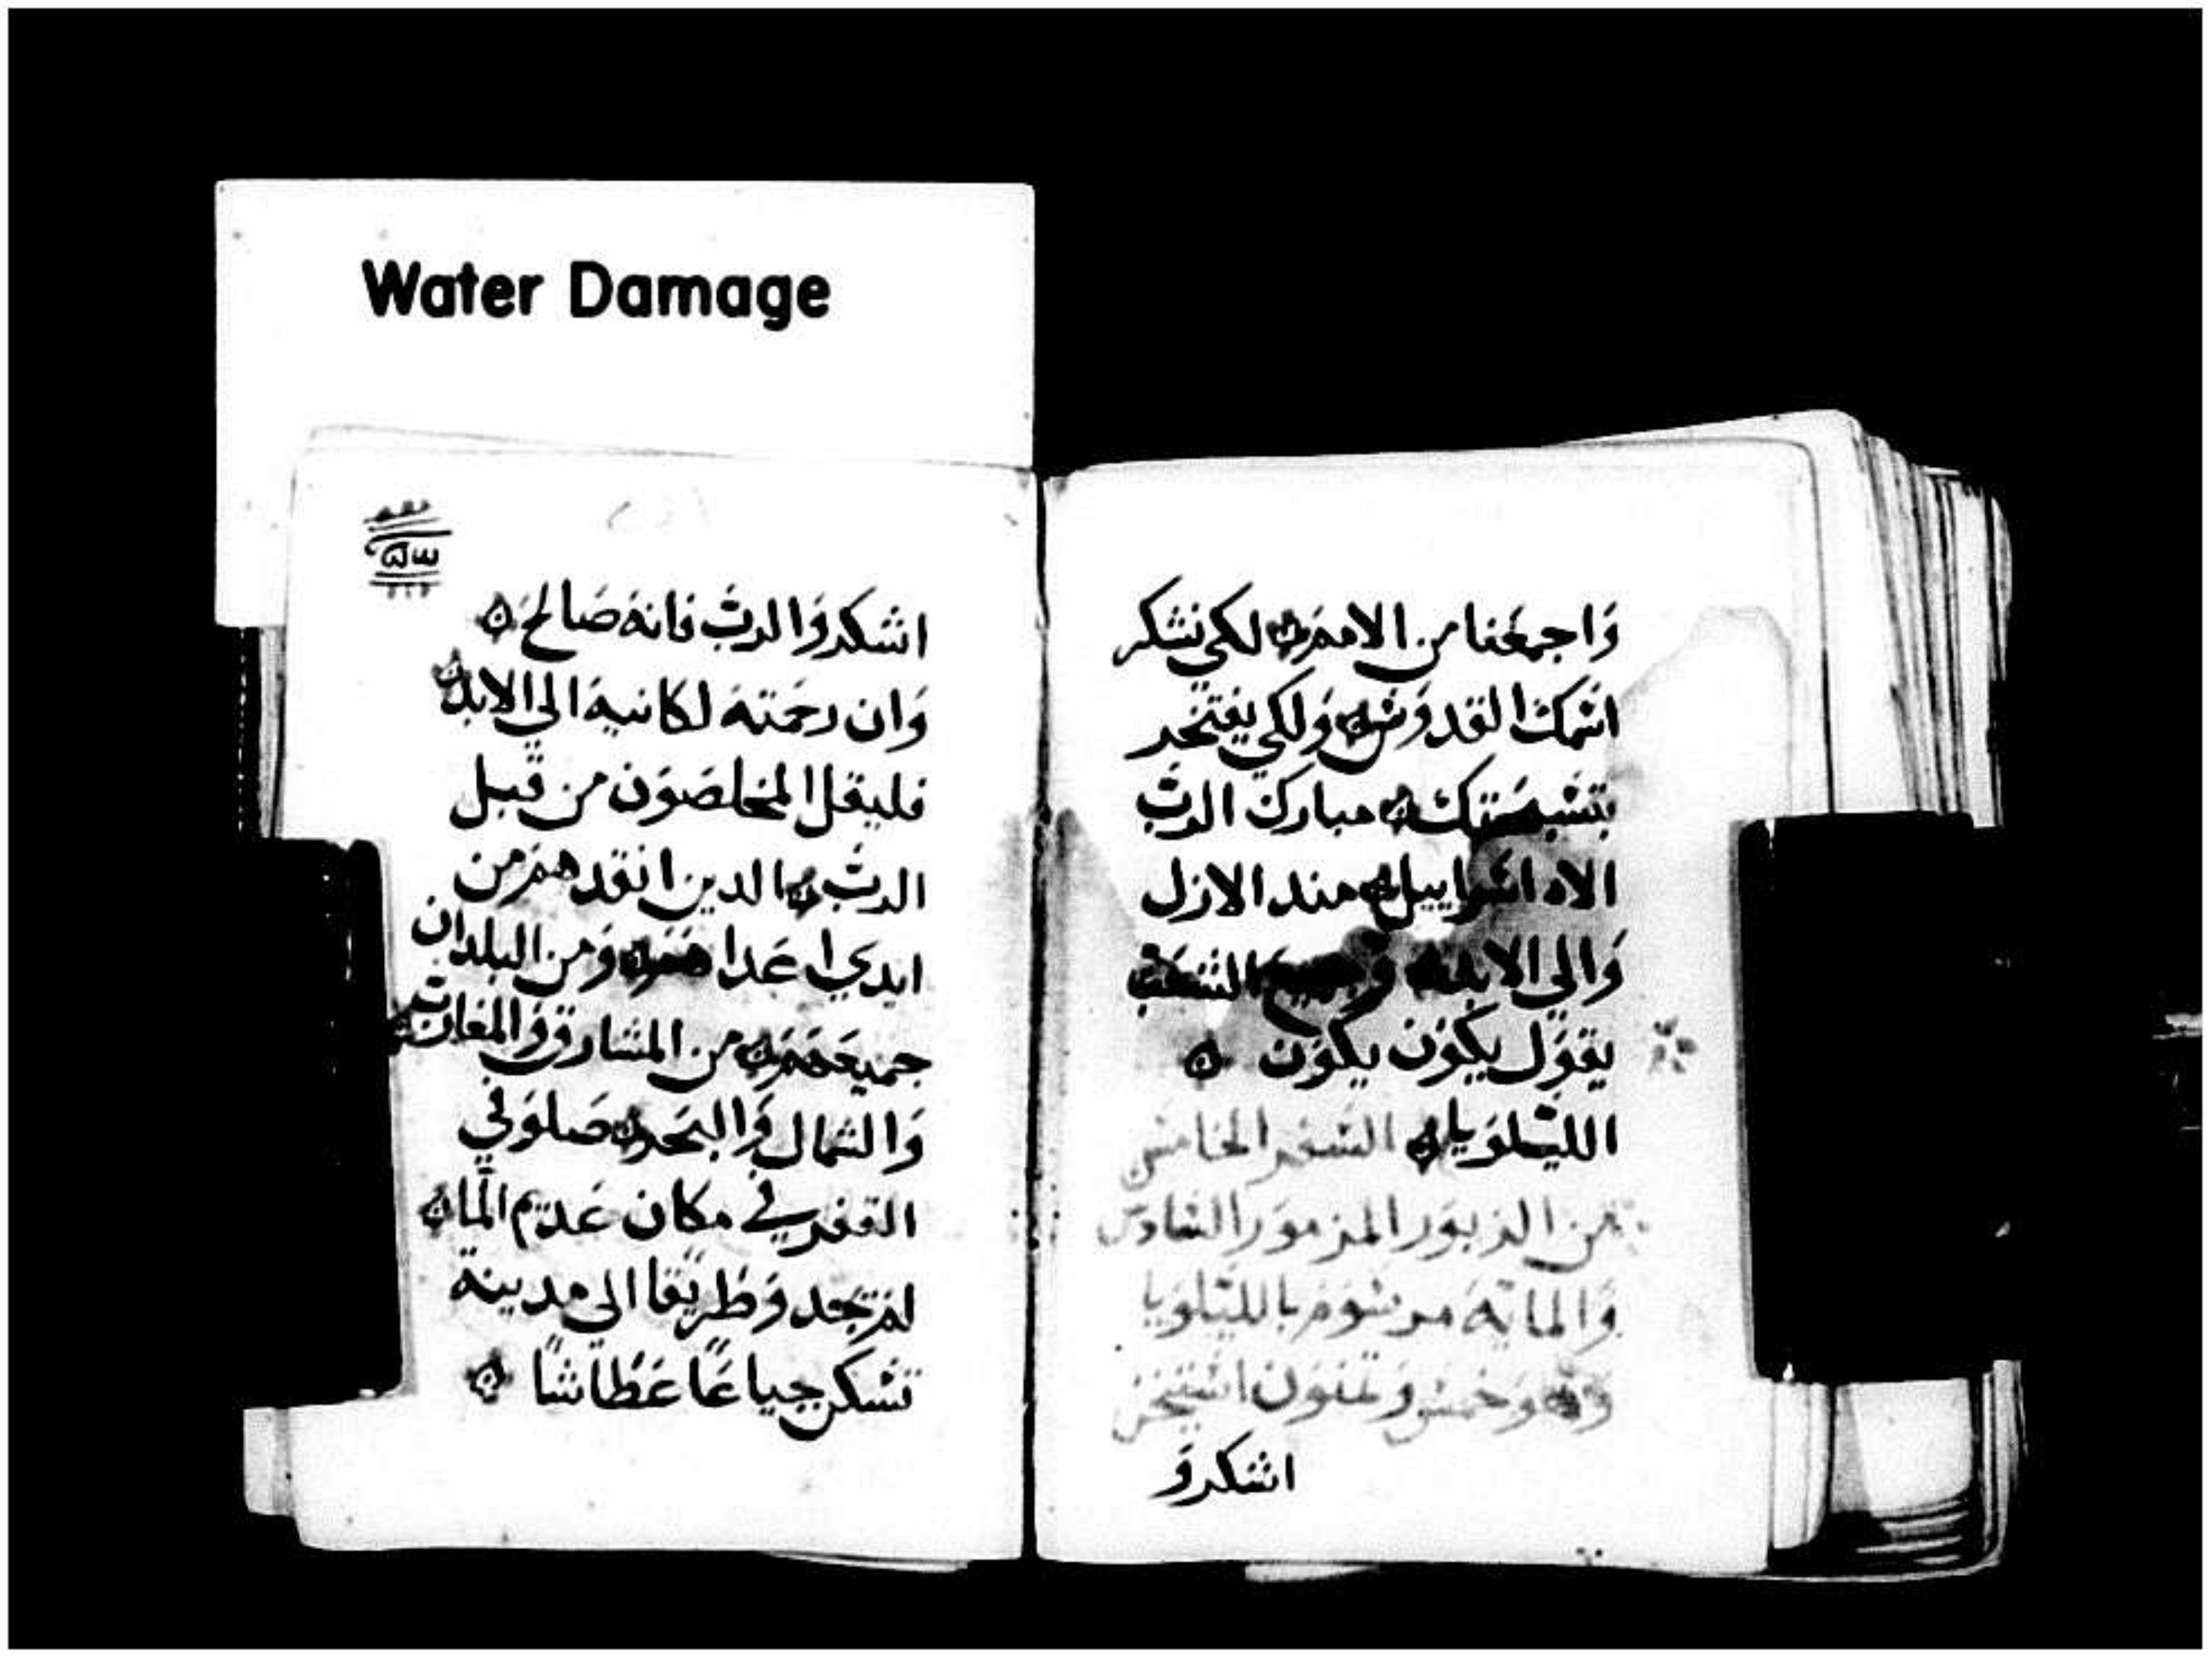 Water Damage
وَاجمعَنا من الامَمَ لكي نشكر
اسمك القدوَس وَلكي يفتخر
بتسبحتك مبارك الربَّ
الاه اسراييل مند الازل
وَالي الابد وَجميع الشعَب
يقوَل يكوَن يكوَن
الليلوَيا السفر الخامس
من الزبوَر المزموَر السادس
وَالمايَة مرسوَم بالليلوَيا
وَخمس وَ استيخن
اشكروَ
اشكروَا الربَّ فانهَ صَالح
وَان رحمَتهَ لكاينهَ الي الابد
فليقل المخلصَوَن من قبل
الربَّ الدين انقدهمَ من
ايدي اعَداهمَ وَمن البلدان
جميعَهمَ من المشارق وَالمغارب
وَالشمال وَالبحَر ضَلوَ في
القفر في مكان عَديم الما
لم تجَد وَطريقا الي مدينة
تسكن جياعًا عَطاشا